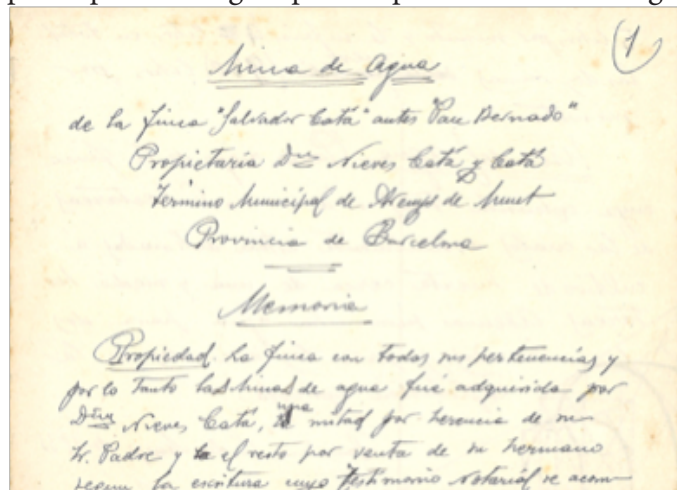 1
Mina de Agua
de la finca "Salvador Catá" antes "Pau Bernado"
Propietaria Dña Nieves Catá y Catá
Término Municipal de Arenys de Munt
Provincia de Barcelona
Memoria
Propiedad. La finca con todas sus pertenencias y
por lo tanto las Minas de agua fué adquirida por
Dña Nieves Catá, una mitad por herencia de su
Sr. Padre y el resto por venta de su hermano
segun la escritura cuyo testimonio Notarial se acom-